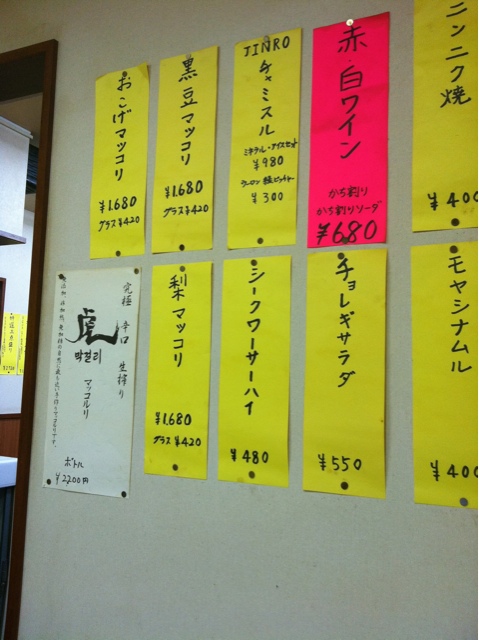 おこげマッコリ
¥1.680
グラス¥420
黒豆マッコリ
¥1.680
グラス¥420
JINRO
チャミスル
ミネラル・アイスセット
¥980
¥300
赤・白ワイン
かち割り
かち割りソーダ
¥680
ニンニク焼
¥400
究極 辛口 生搾り
虎
막걸리
マッコルリ
ボトル
¥2,200円
梨マッコリ
¥1.680
グラス¥420
シークワーサーハイ
¥480
チョレギサラダ
¥550
モヤシナムル
¥400